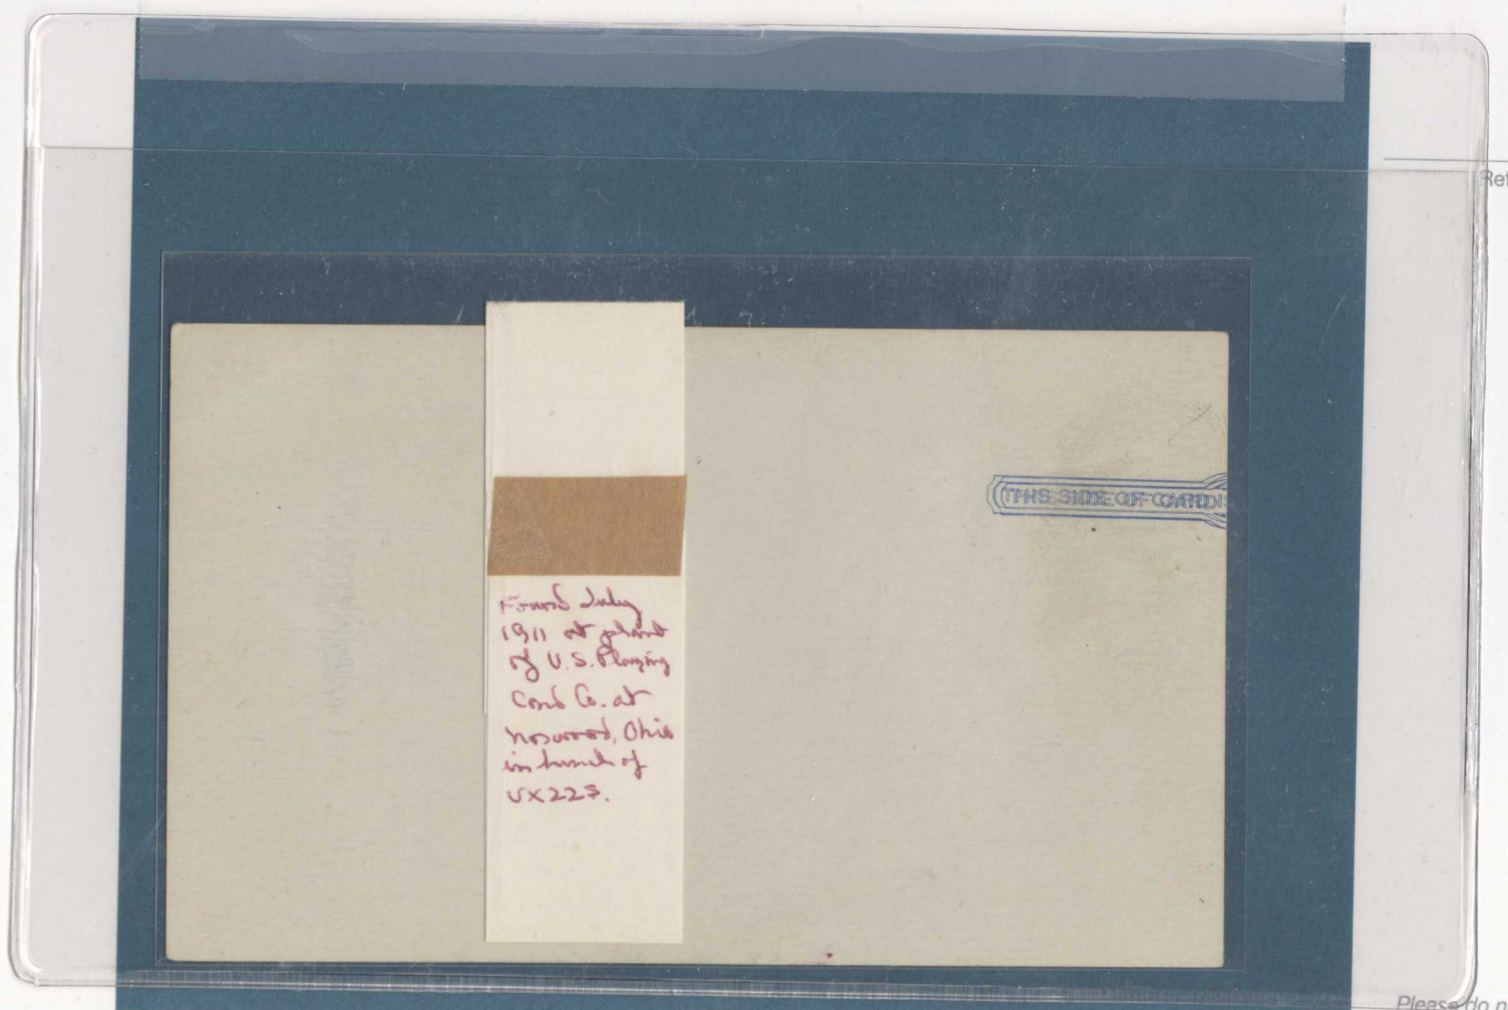 Ref
THIS SIDE OF CARD IS
Found July
1911 at plant
of U.S. Playing
Card Co. at
Norwood, Ohio
in bunch of
UX22S.
Please do n